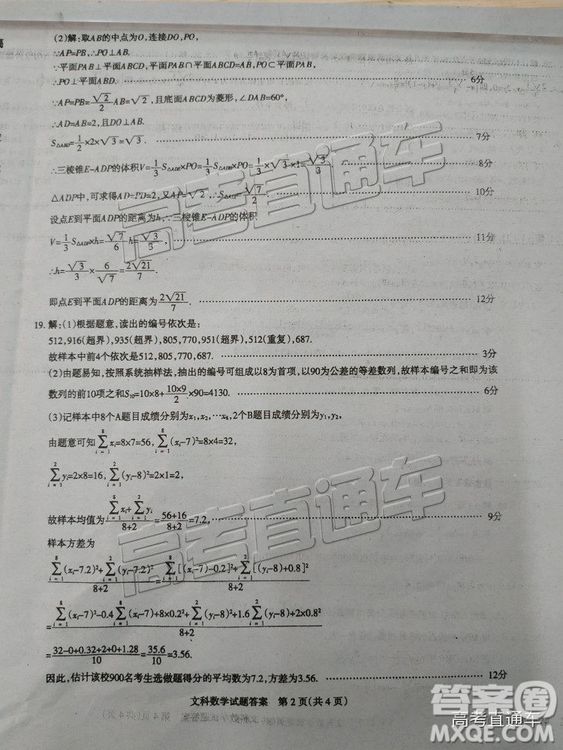 (2)解:取AB的中点为O,连接DO,PO,
∵AP=PB,∴PO⊥AB.
∵平面PAB⊥平面ABCD,平面PAB∩平面ABCD=AB,PO⊂平面PAB,
∴PO⊥平面ABCD. 6分
∵AP=PB=√2/2 AB=√2,且底面ABCD为菱形,∠DAB=60°,
∴AD=AB=2,且DO⊥AB.
S△ADE=1/2×2×√3=√3. 7分
∴三棱锥E-ADP的体积V=1/3 S△ADE×PO=1/3×√3×1=√3/3. 8分
△ADP中,可求得AD=PD=2,又AP=√2,∴S△ADP=√7/2. 10分
设点E到平面ADP的距离为h,∵三棱锥E-ADP的体积
V=1/3 S△ADP×h=√7/6 h=√3/3, 11分
∴h=√3/3×6/√7=2√21/7.
即点E到平面ADP的距离为2√21/7. 12分
19. 解:(1)根据题意,读出的编号依次是:
512,916(超界),935(超界),805,770,951(超界),512(重复),687.
故样本中前4个依次是512,805,770,687. 3分
(2)由题易知,按照系统抽样法,抽出的编号可组成以8为首项,以90为公差的等差数列,故样本编号之和即为该
数列的前10项之和S₁₀=10×8+10×9/2×90=4130. 6分
(3)记样本中8个A题目成绩分别为x₁,x₂,…x₈,2个B题目成绩分别为y₁,y₂,
由题意可知∑(i=1,8)xᵢ=8×7=56,∑(i=1,8)(xᵢ-7)²=8×4=32,
∑(i=1,2)yᵢ=2×8=16,∑(i=1,2)(yᵢ-8)²=2×1=2,
故样本均值为(∑(i=1,8)xᵢ+∑(i=1,2)yᵢ)/(8+2)=(56+16)/(8+2)=7.2, 9分
样本方差为
(∑(i=1,8)(xᵢ-7.2)²+∑(i=1,2)(yᵢ-7.2)²)/(8+2)=(∑(i=1,8)[(xᵢ-7)-0.2]²+∑(i=1,2)[(yᵢ-8)+0.8]²)/(8+2)
=(∑(i=1,8)(xᵢ-7)²-0.4∑(i=1,8)(xᵢ-7)+8×0.2²+∑(i=1,2)(yᵢ-8)²+1.6∑(i=1,2)(yᵢ-8)+2×0.8²)/(8+2)
=(32-0+0.32+2+0+1.28)/10=35.6/10=3.56.
因此,估计该校900名考生选做题得分的平均数为7.2,方差为3.56. 12分
文科数学试题答案 第2页(共4页)
高考直通车
高考直通车
答案圈
高考直通车